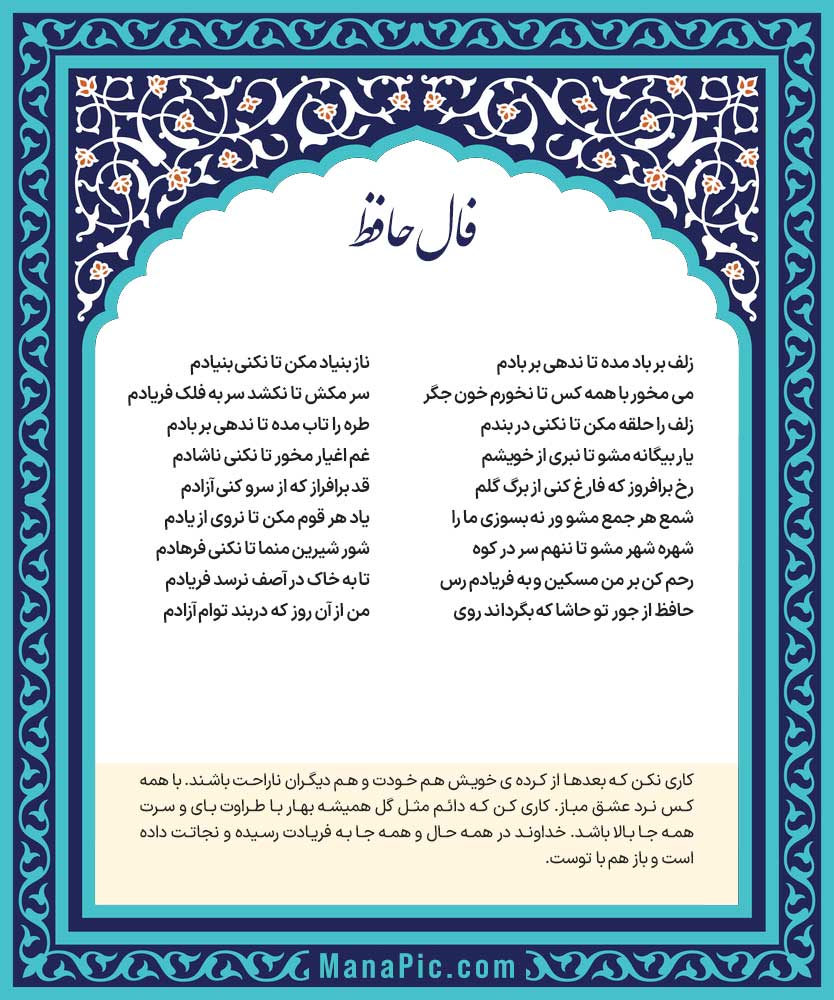 فال حافظ
زلف بر باد مده تا ندهی بر بادم
ناز بنیاد مکن تا نکنی بنیادم
می مخور با همه کس تا نخورم خون جگر
سر مکش تا نکشد سر به فلک فریادم
زلف را حلقه مکن تا نکنی در بندم
طره را تاب مده تا ندهی بر بادم
یار بیگانه مشو تا نبری از خویشم
غم اغیار مخور تا نکنی ناشادم
رخ برافروز که فارغ کنی از برگ گلم
قد برافراز که از سرو کنی آزادم
شمع هر جمع مشو ور نه بسوزی ما را
یاد هر قوم مکن تا نروی از یادم
شهره شهر مشو تا ننهم سر در کوه
شور شیرین منما تا نکنی فرهادم
رحم کن بر من مسکین و به فریادم رس
تا به خاک در آصف نرسد فریادم
حافظ از جور تو حاشا که بگرداند روی
من از آن روز که دربند توام آزادم
کاری نکن که بعدها از کرده ی خویش هم خودت و هم دیگران ناراحت باشند. با همه
کس نرد عشق مباز. کاری کن که دائم مثل گل همیشه بهار با طراوت بای و سرت
همه جا بالا باشد. خداوند در همه حال و همه جا به فریادت رسیده و نجاتت داده
است و باز هم با توست.
ManaPic.com